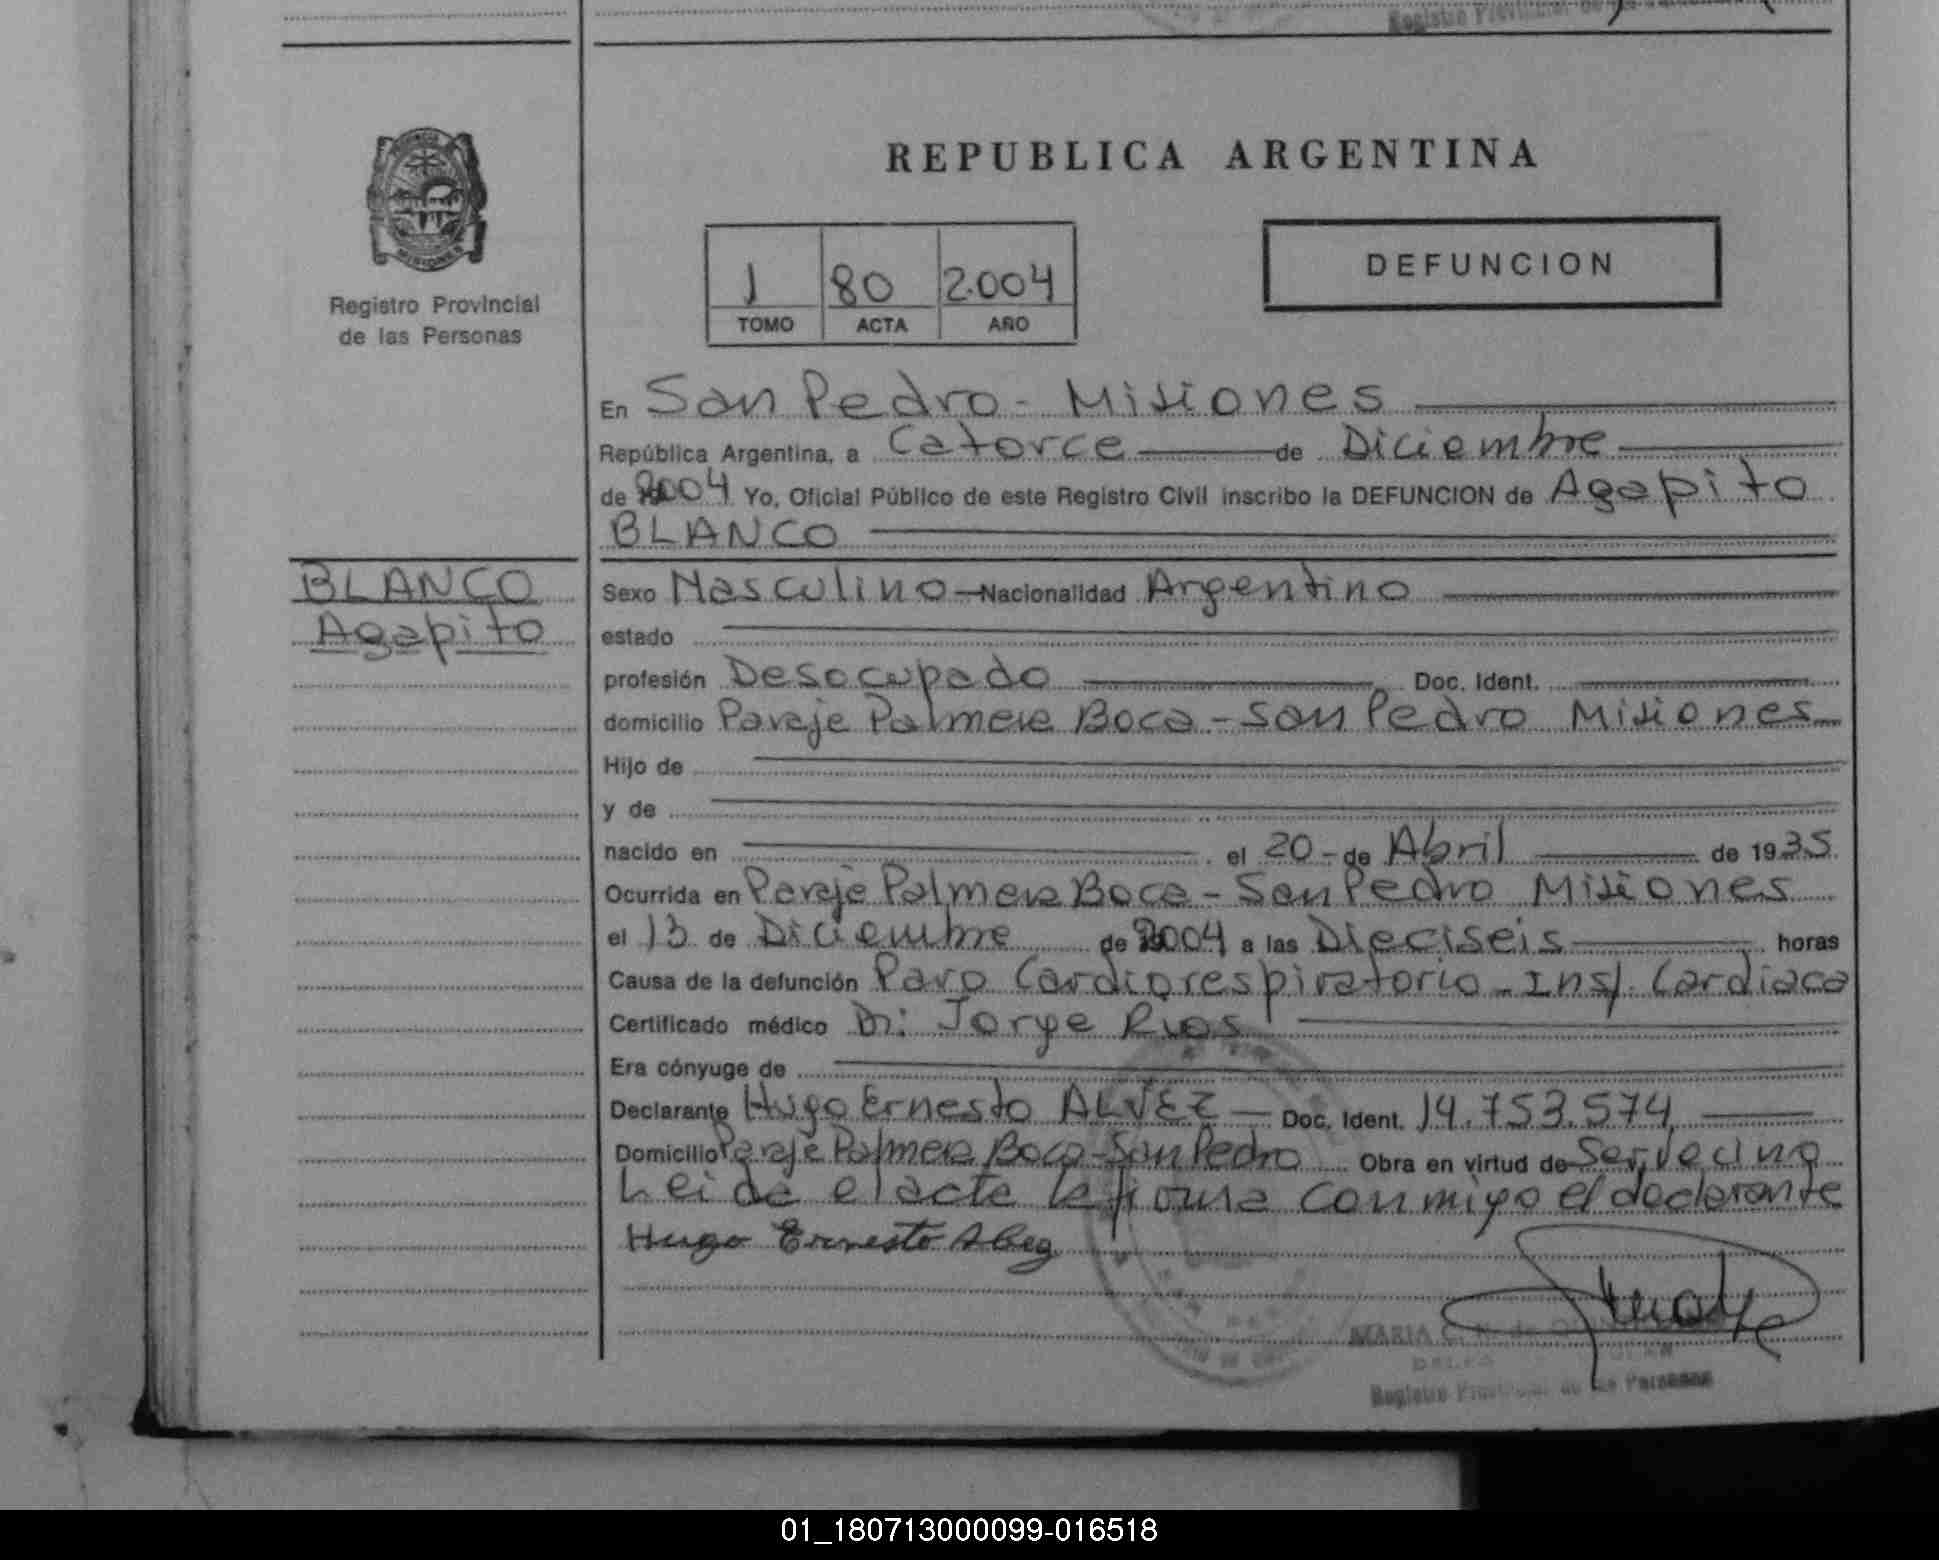 REPUBLICA ARGENTINA
Registro Provincial
de las Personas
1 80 2004
TOMO ACTA AÑO
DEFUNCION
En San Pedro - Misiones
República Argentina, a Catorce de Diciembre
de 2004 Yo, Oficial Público de este Registro Civil inscribo la DEFUNCION de Agapito
BLANCO
BLANCO
Agapito
Sexo Masculino - Nacionalidad Argentino
estado
profesión Desocupado Doc. Ident.
domicilio Paraje Palmera Boca - San Pedro Misiones
Hijo de
y de
nacido en el 20 - de Abril de 1935
Ocurrida en Paraje Palmera Boca - San Pedro Misiones
el 13 de Diciembre de 2004 a las Dieciseis horas
Causa de la defunción Paro Cardiorespiratorio - Insf. Cardiaca
Certificado médico Dr: Jorge Rios
Era cónyuge de
Declarante Hugo Ernesto ALVEZ - Doc. Ident. 14.753.574
Domicilio Paraje Palmera Boca - San Pedro Obra en virtud de Ser vecino
Leida el acta la firma conmigo el declarante
Hugo Ernesto
MARIA C. N. de
Registro Provincial de las Personas
01_180713000099-016518